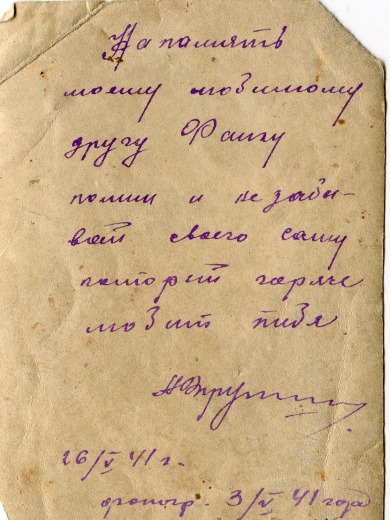 На память
моему любимому
другу
помни и не забы-
вай своего сашу
которий горяче
любит тибя.
26/V 41 г.
фотогр. 3/V 41 года